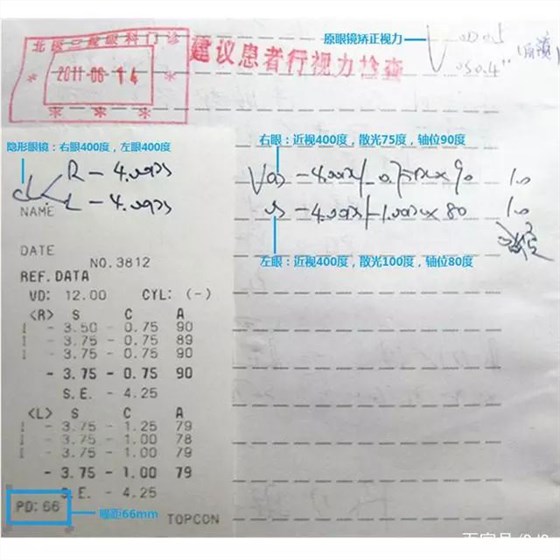 原眼镜矫正视力
北医三院眼科门诊
2011-06-14
建议患者行视力检查
隐形眼镜：右眼400度，左眼400度
R - 4.00DS
L - 4.00DS
右眼：近视400度，散光75度，轴位90度
1.0
1.0
左眼：近视400度，散光100度，轴位80度
NAME
DATE
NO.3812
REF.DATA
VD: 12.00 CYL: (-)
<R> S C A
- 3.50 - 0.75 90
- 3.75 - 0.75 89
- 3.75 - 0.75 90
- 3.75 - 0.75 90
S.E. - 4.25
<L> S C A
- 3.75 - 1.25 79
- 3.75 - 1.00 78
- 3.75 - 1.00 79
- 3.75 - 1.00 79
S.E. - 4.25
PD: 66
瞳距66mm
TOPCON